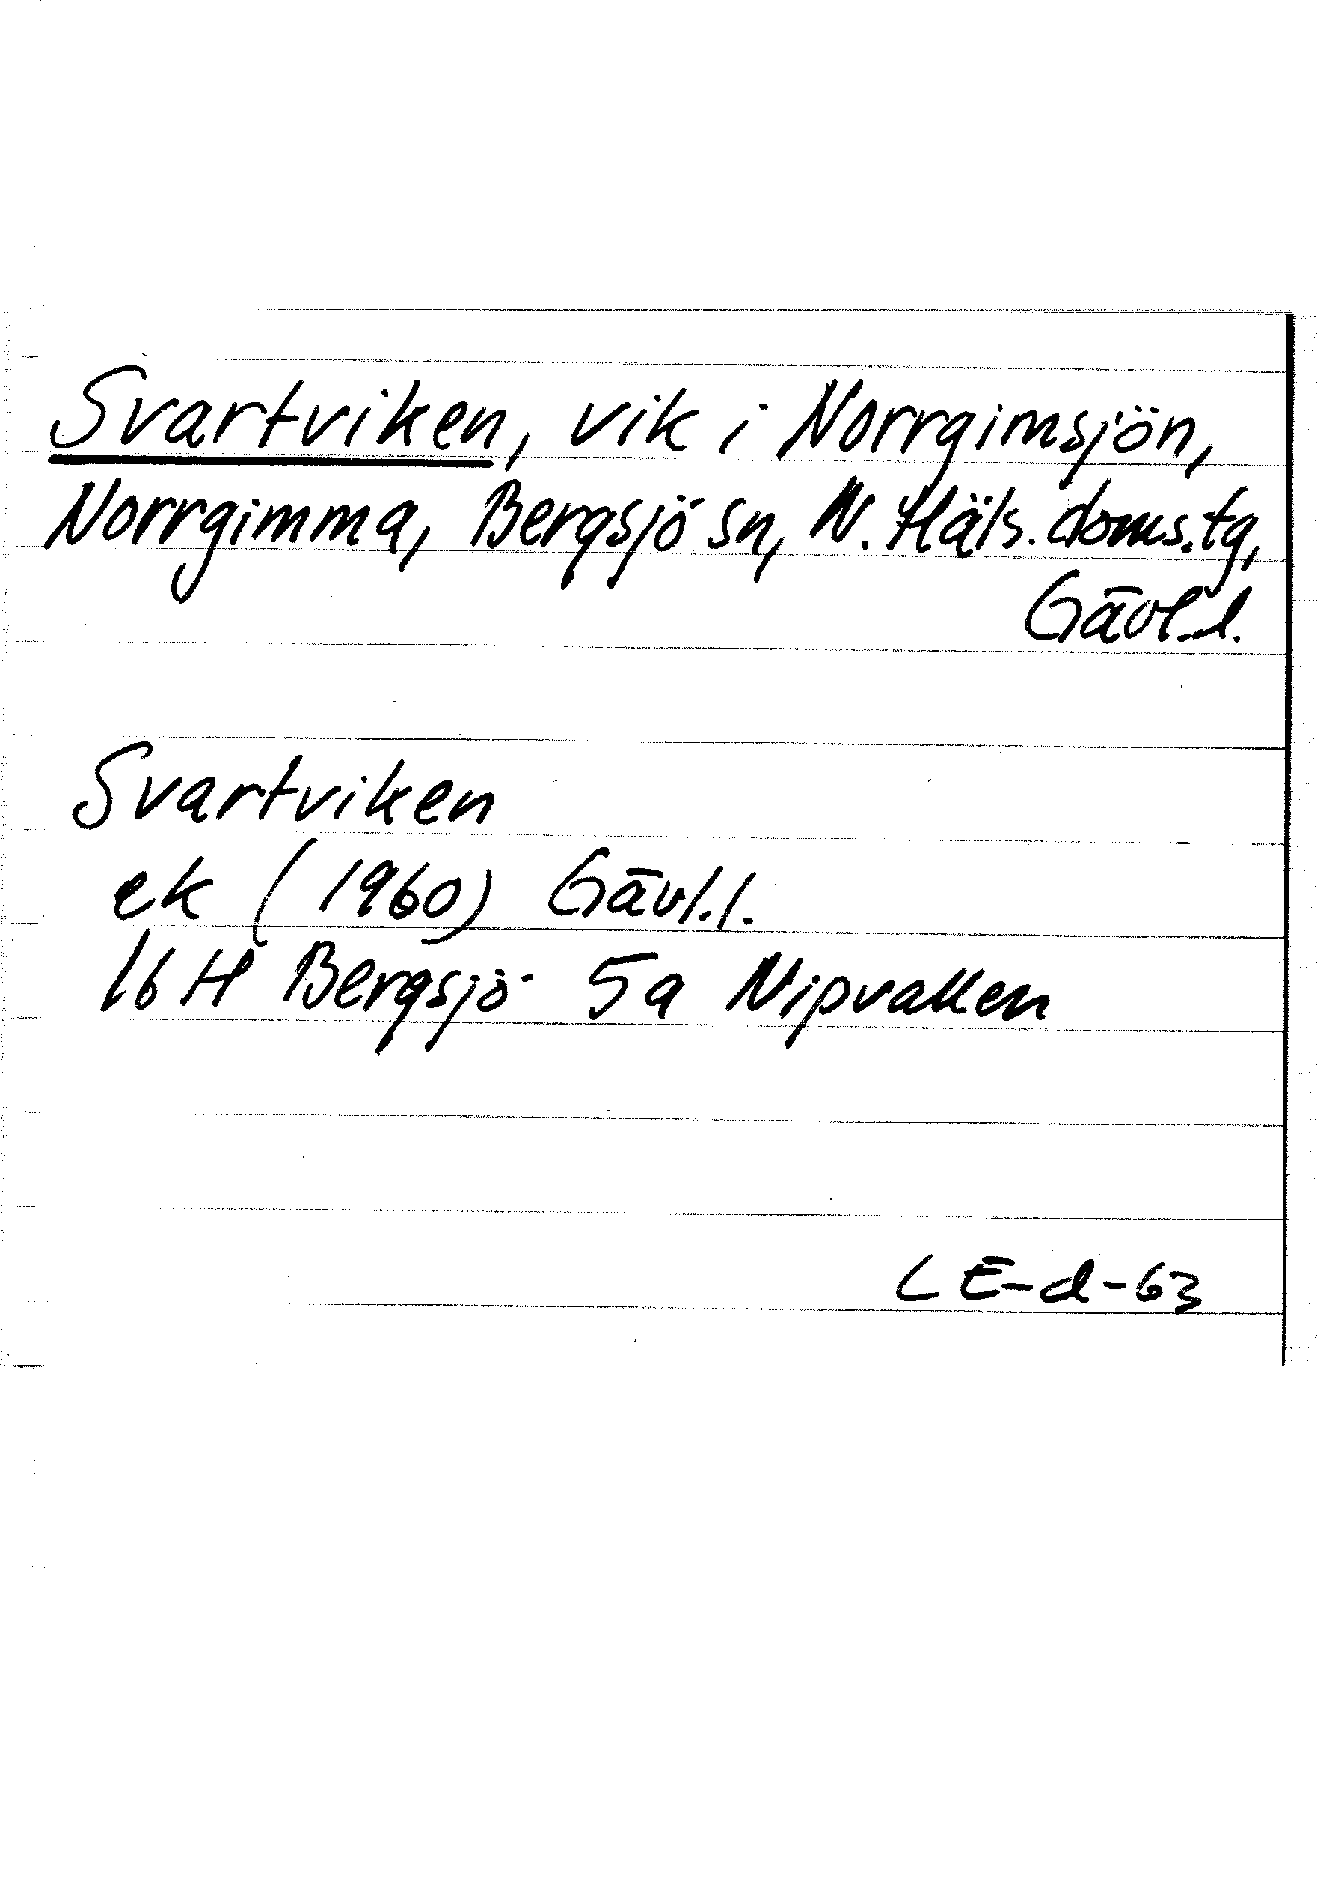 Svartviken, vik i Norrgimsjön,
Norrgimma, Bergsjö sn, N. Häls. doms.tg,
Gävl.l.
Svartviken
ek (1960) Gävl.l.
16 H Bergsjö 5a Nipvallen
LE-d-63